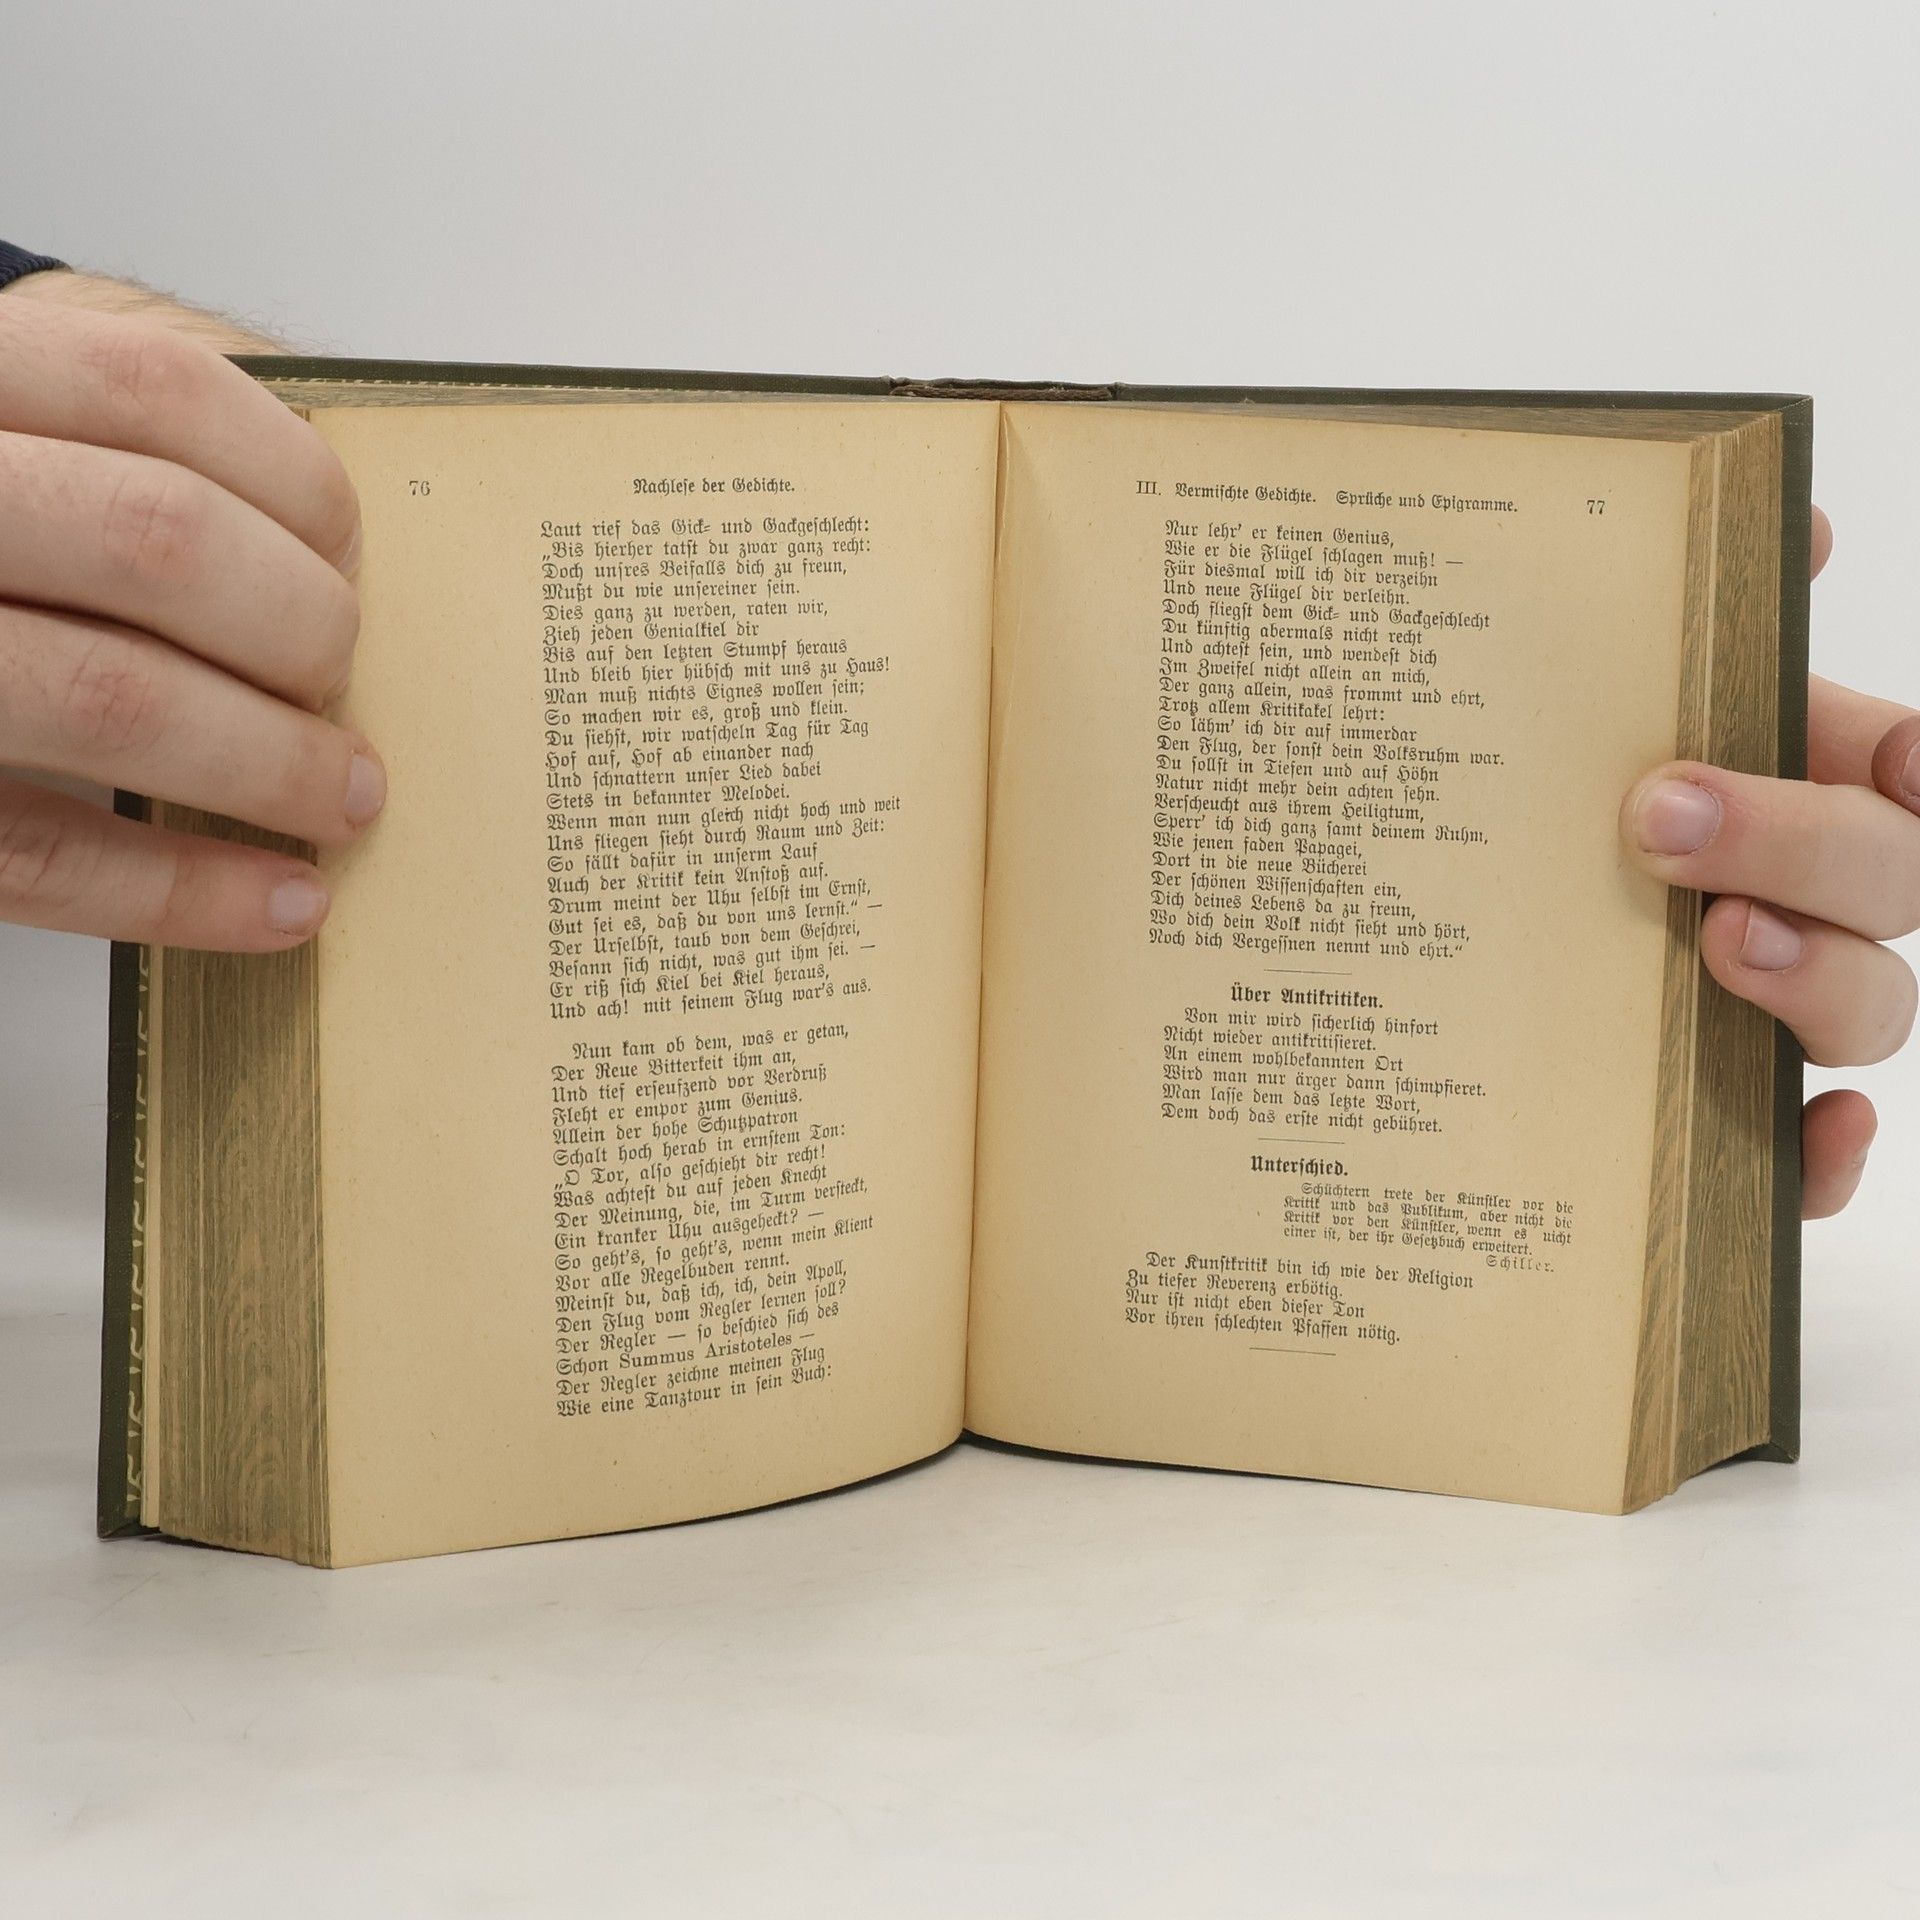 76
Nachlese der Gedichte.
Laut rief das Gick- und Gackgeschlecht:
„Bis hierher tatst du zwar ganz recht:
Doch unsres Beifalls dich zu freun,
Mußt du wie unsereiner sein.
Dies ganz zu werden, raten wir,
Zieh jeden Genialkiel dir
Bis auf den letzten Stumpf heraus
Und bleib hier hübsch mit uns zu Haus!
Man muß nichts Eignes wollen sein;
So machen wir es, groß und klein.
Du siehst, wir watscheln Tag für Tag
Hof auf, Hof ab einander nach
Und schnattern unser Lied dabei
Stets in bekannter Melodei.
Wenn man nun gleich nicht hoch und weit
Uns fliegen sieht durch Raum und Zeit:
So fällt dafür in unserm Lauf
Auch der Kritik kein Anstoß auf.
Drum meint der Uhu selbst im Ernst,
Gut sei es, daß du von uns lernst.“ —
Der Urselbst, taub von dem Geschrei,
Besann sich nicht, was gut ihm sei. —
Er riß sich Kiel bei Kiel heraus,
Und ach! mit seinem Flug war's aus.
Nun kam ob dem, was er getan,
Der Reue Bitterkeit ihm an,
Und tief erseufzend vor Verdruß
Fleht er empor zum Genius.
Allein der hohe Schutzpatron
Schalt hoch herab in ernstem Ton:
„O Tor, also geschieht dir recht!
Was achtest du auf jeden Knecht
Der Meinung, die, im Turm versteckt,
Ein kranker Uhu ausgeheckt? —
So geht's, so geht's, wenn mein Klient
Vor alle Regelbuden rennt.
Meinst du, daß ich, ich, dein Apoll,
Den Flug vom Regler lernen soll?
Der Regler — so beschied sich des
Schon Summus Aristoteles —
Der Regler zeichne meinen Flug
Wie eine Tanztour in sein Buch:
III. Vermischte Gedichte. Sprüche und Epigramme.
77
Nur lehr' er keinen Genius,
Wie er die Flügel schlagen muß! —
Für diesmal will ich dir verzeihn
Und neue Flügel dir verleihn.
Doch fliegst dem Gick- und Gackgeschlecht
Du künftig abermals nicht recht
Und achtest sein, und wendest dich
Im Zweifel nicht allein an mich,
Der ganz allein, was frommt und ehrt,
Trotz allem Kritikakel lehrt:
So lähm' ich dir auf immerdar
Den Flug, der sonst dein Volksruhm war.
Du sollst in Tiefen und auf Höhn
Natur nicht mehr dein achten sehn.
Verscheucht aus ihrem Heiligtum,
Sperr' ich dich ganz samt deinem Ruhm,
Wie jenen faden Papagei,
Dort in die neue Bücherei
Der schönen Wissenschaften ein,
Dich deines Lebens da zu freun,
Wo dich dein Volk nicht sieht und hört,
Noch dich Vergessnen nennt und ehrt.“
Über Antikritiken.
Von mir wird sicherlich hinfort
Nicht wieder antikritisieret.
An einem wohlbekannten Ort
Wird man nur ärger dann schimpfieret.
Man lasse dem das letzte Wort,
Dem doch das erste nicht gebühret.
Unterschied.
Schüchtern trete der Künstler vor die
Kritik und das Publikum, aber nicht die
Kritik vor den Künstler, wenn es nicht
einer ist, der ihr Gesetzbuch erweitert.
Schiller.
Der Kunstkritik bin ich wie der Religion
Zu tiefer Reverenz erbötig.
Nur ist nicht eben dieser Ton
Vor ihren schlechten Pfaffen nötig.